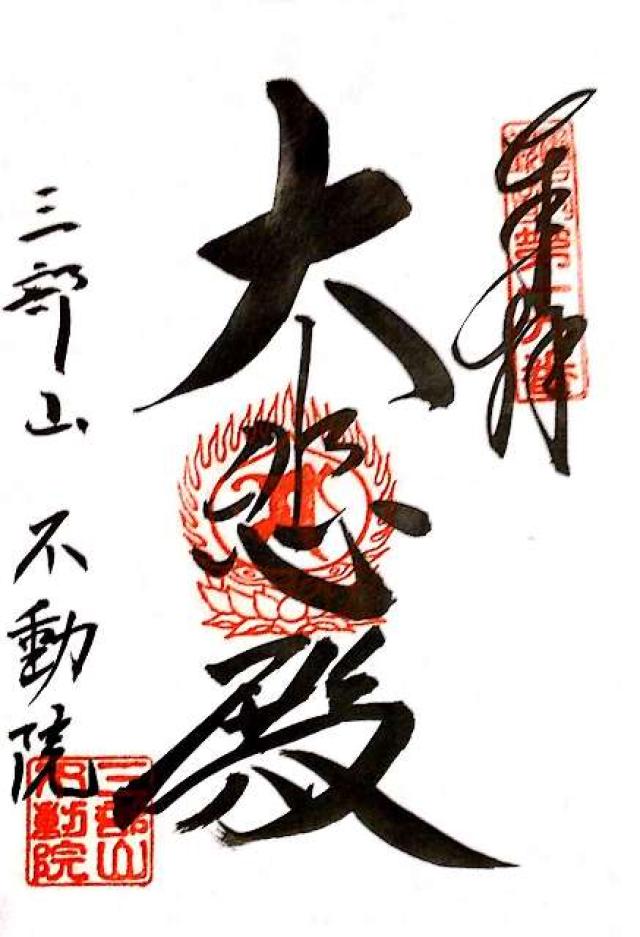 奉拝
大悲殿
三部山 不動院
三部山
不動院